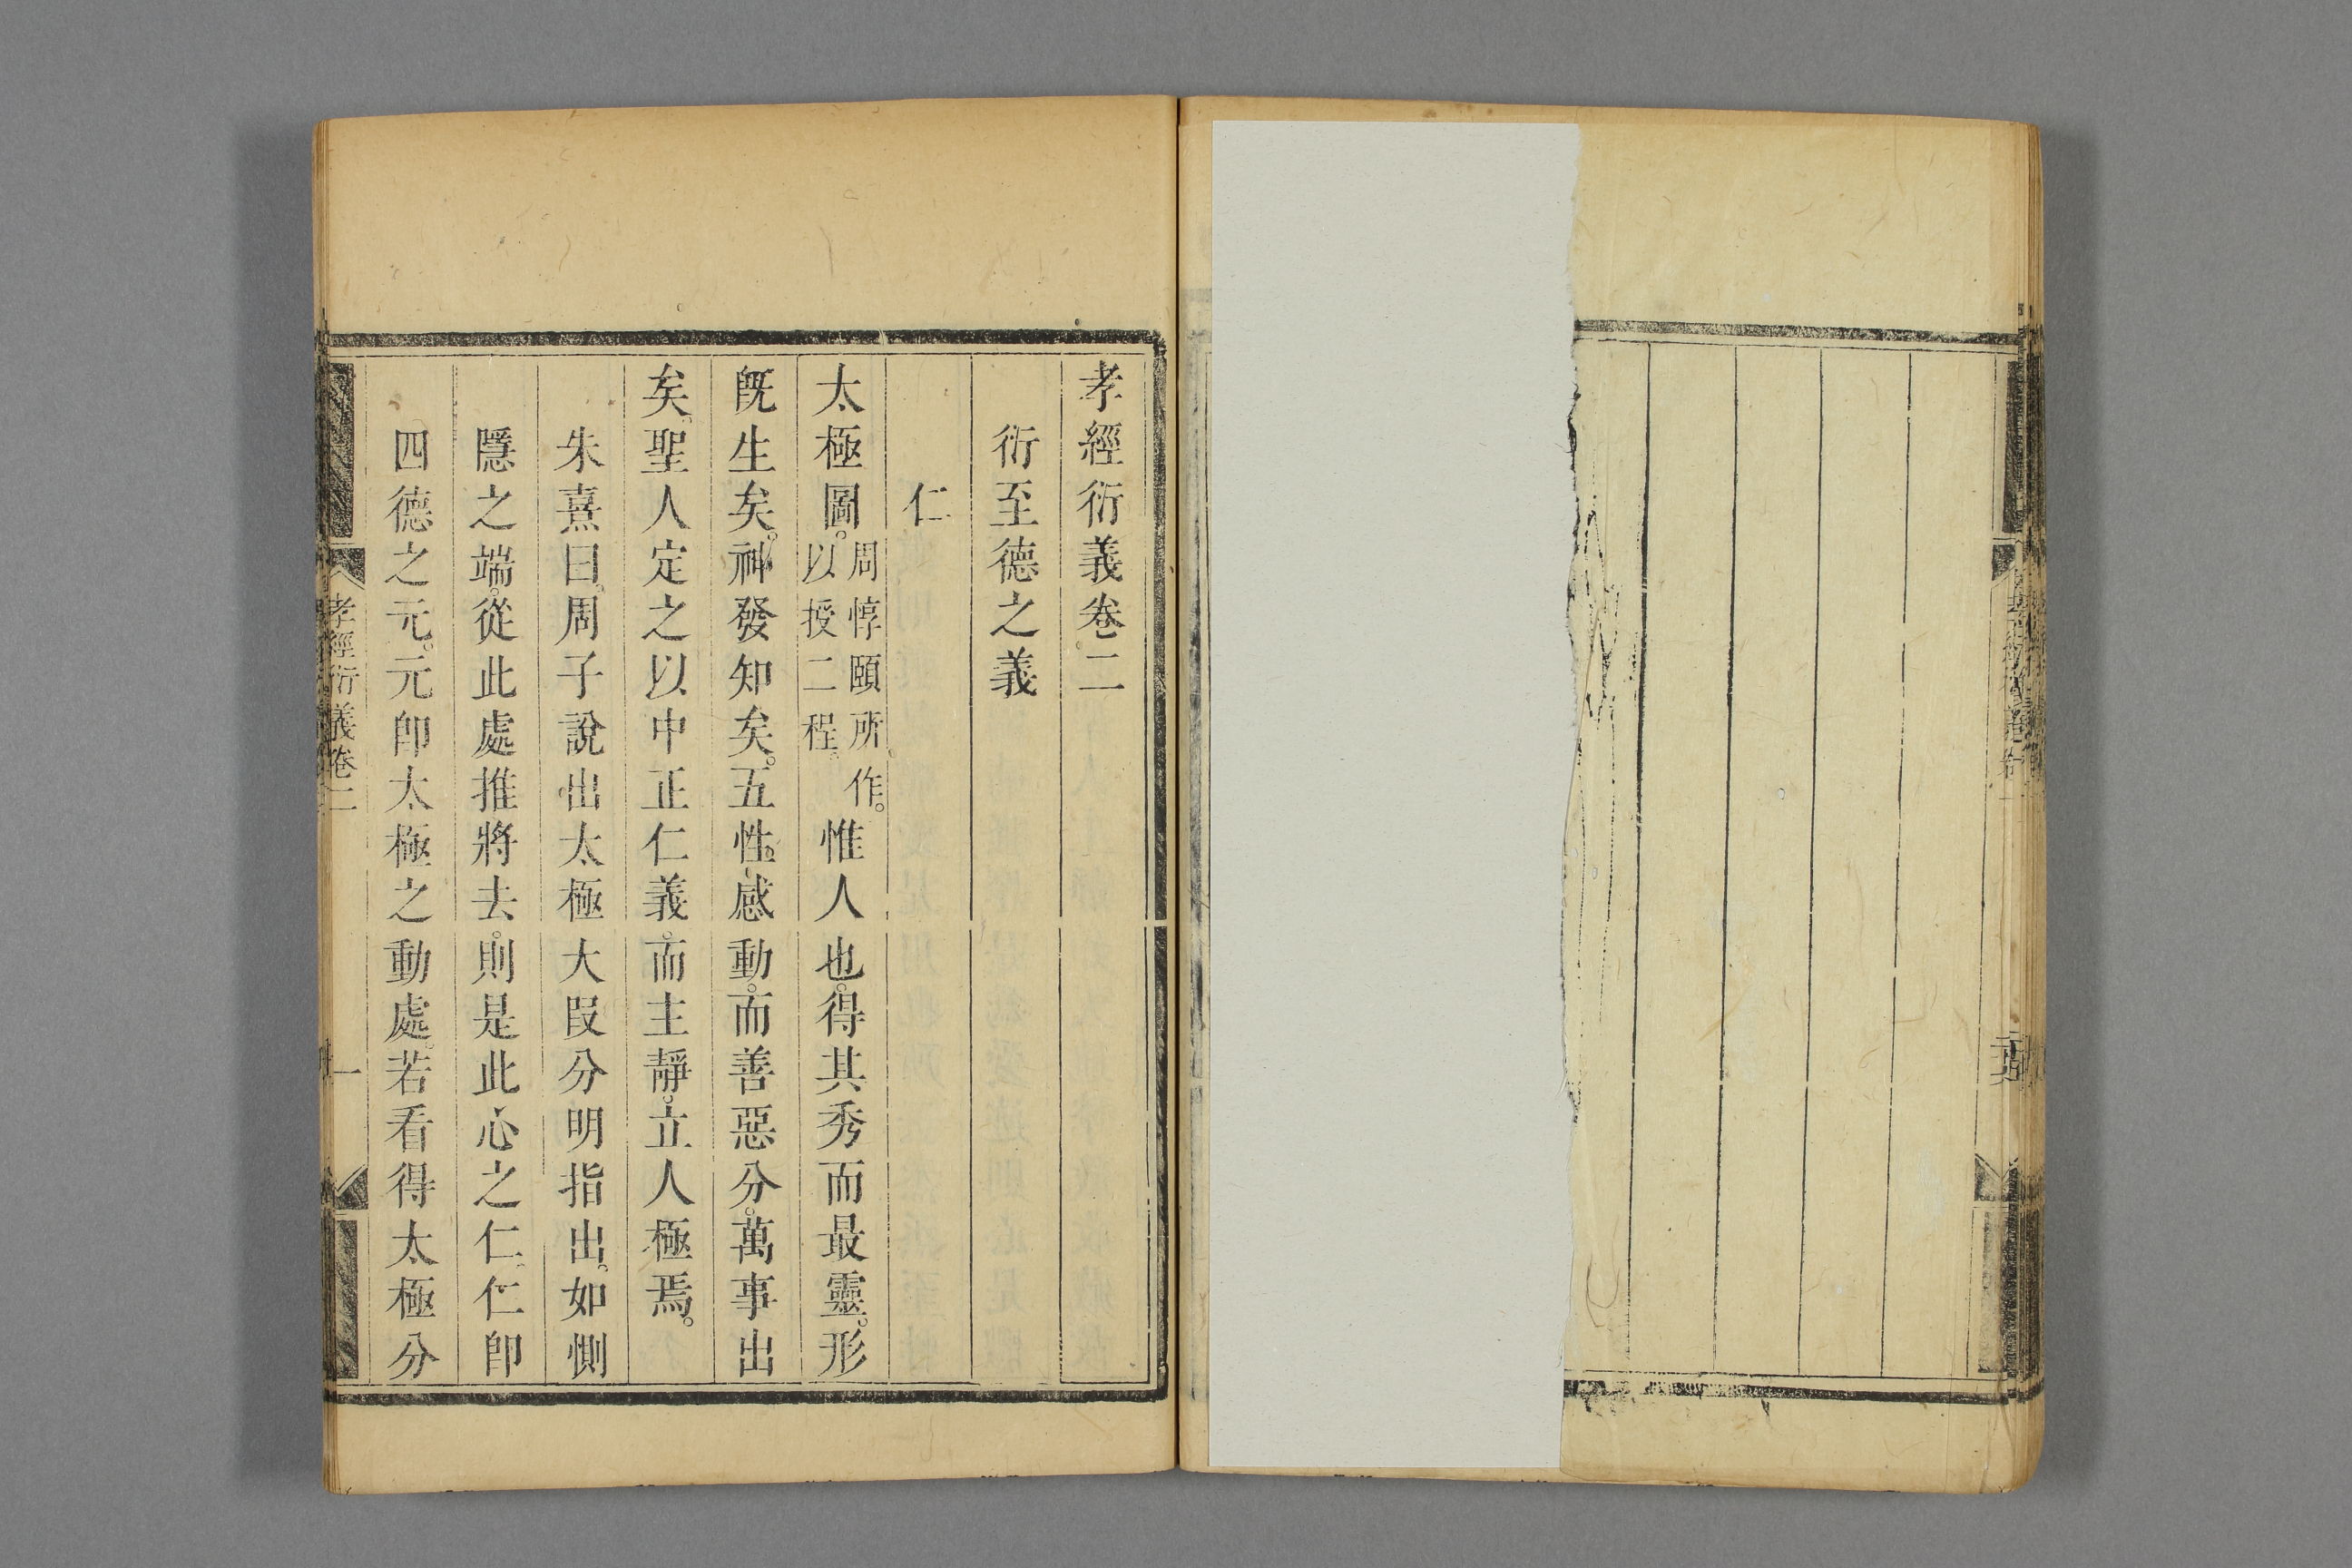 孝經衍義卷二
衍至德之義
仁
太極圖。周惇頤所作。以授二程。惟人也。得其秀而最靈。形
旣生矣。神發知矣。五性。感動。而善惡分。萬事出
矣。聖人定之以中正仁義。而主靜。立人極焉。
朱熹曰。周子說出太極大段分明指出。如惻
隱之端。從此處推將去。則是此心之仁。仁卽
四德之元。元卽太極之動處。若看得太極分
孝經衍義卷二
一